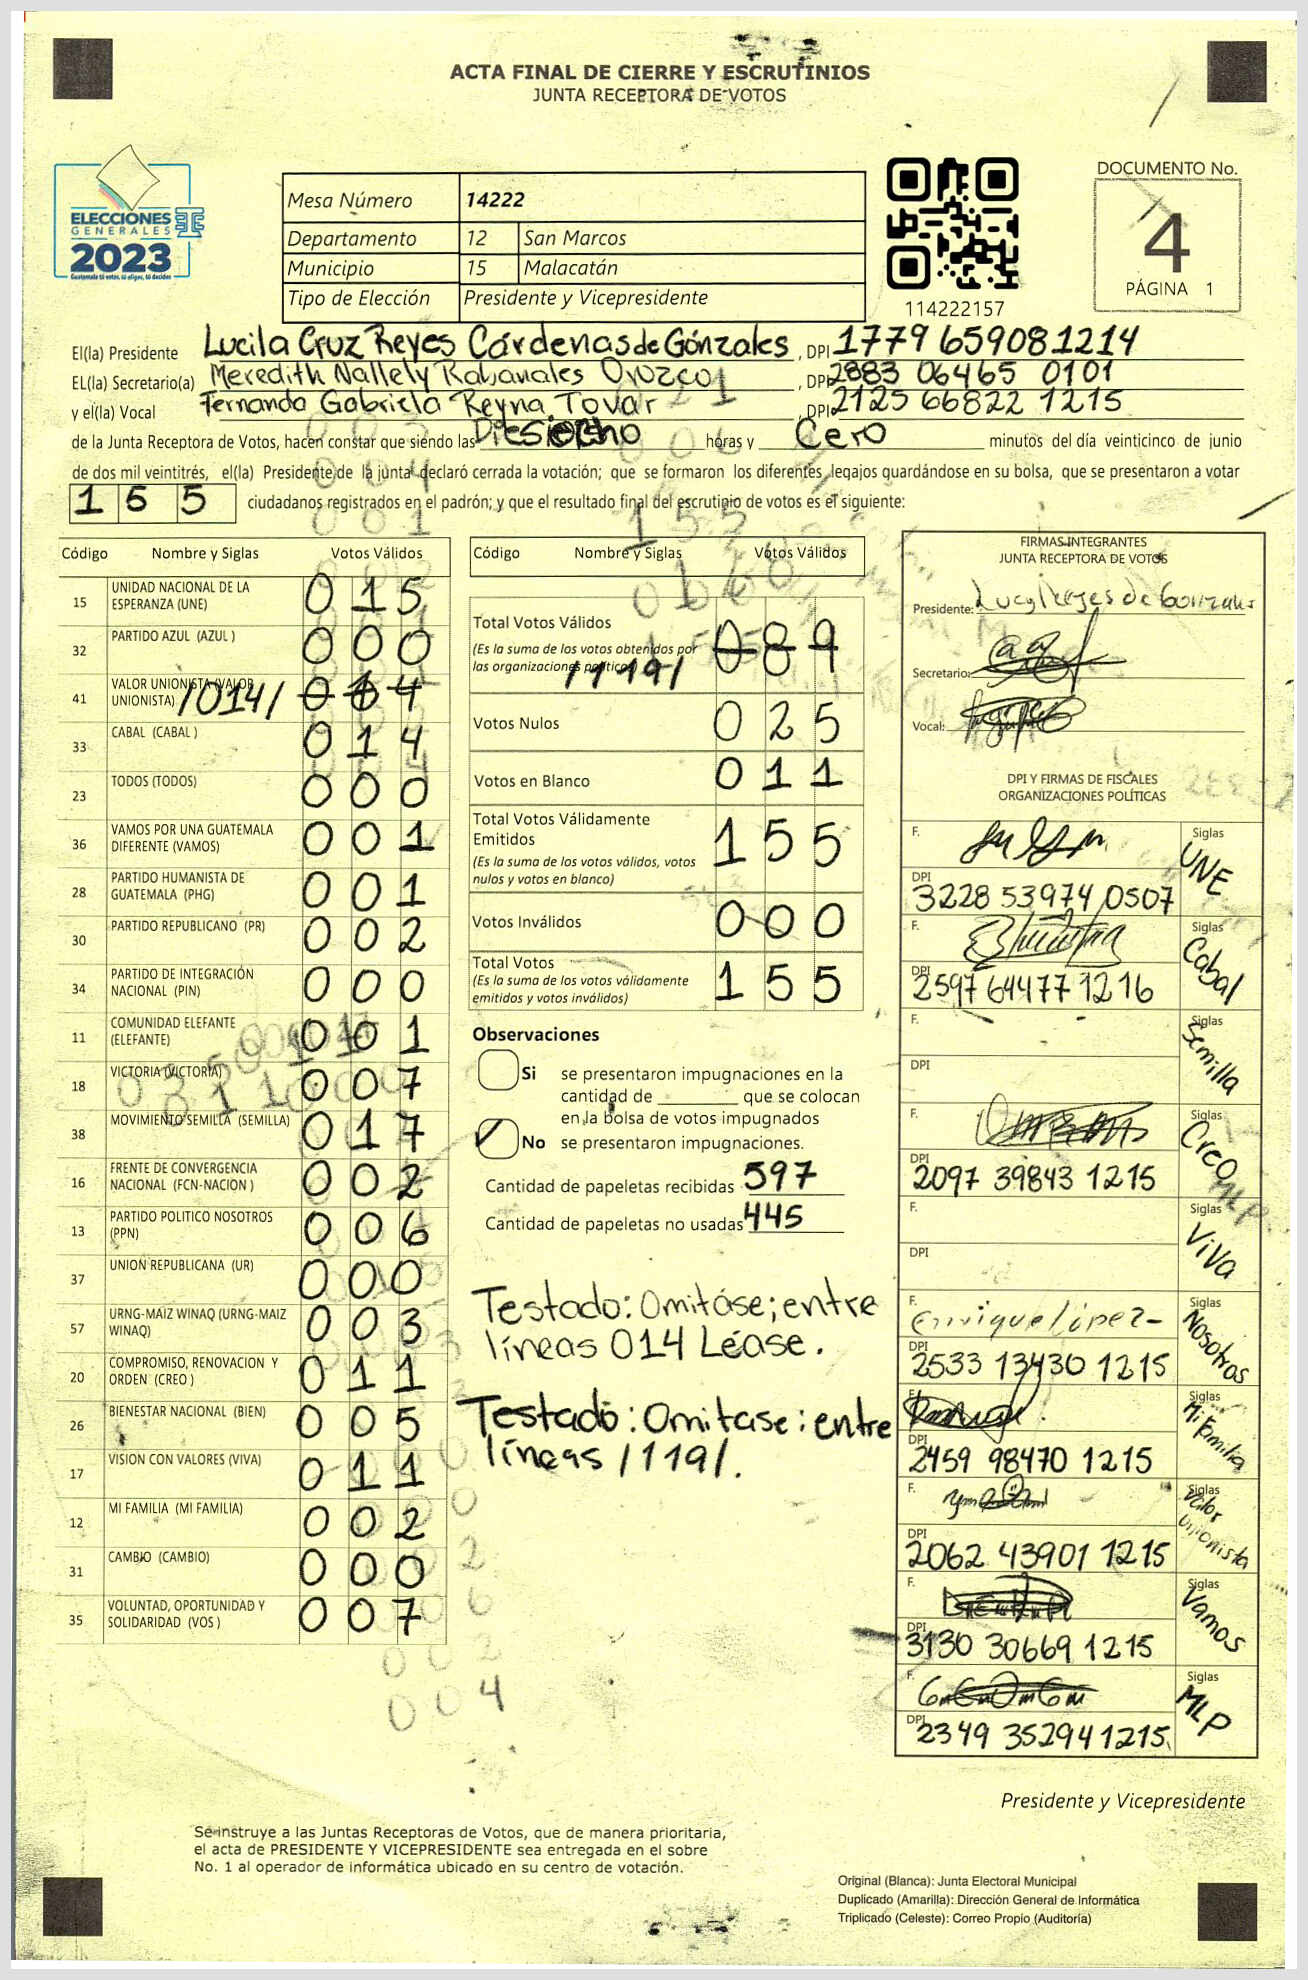 ACTA FINAL DE CIERRE Y ESCRUTINIOS
JUNTA RECEPTORA DE VOTOS
ELECCIONES
GENERALES
2023
Guatemala tú votas, tú eliges, tú decides
Mesa Número 14222
Departamento 12 San Marcos
Municipio 15 Malacatán
Tipo de Elección Presidente y Vicepresidente
114222157
DOCUMENTO No.
4
PÁGINA 1
El(la) Presidente Lucila Cruz Reyes Cárdenas de Gónzales, DPI 1779 65908 1214
EL(la) Secretario(a) Meredith Nallely Rabanales Orozco, DPI 2883 06465 0101
y el(la) Vocal Fernanda Gabriela Reyna Tovar, DPI 2125 66822 1215
de la Junta Receptora de Votos, hacen constar que siendo las Diesiocho horas y Cero minutos del día veinticinco de junio
de dos mil veintitrés, el(la) Presidente de la junta declaró cerrada la votación; que se formaron los diferentes legajos guardándose en su bolsa, que se presentaron a votar
155 ciudadanos registrados en el padrón; y que el resultado final del escrutinio de votos es el siguiente:
Código Nombre y Siglas Votos Válidos
15 UNIDAD NACIONAL DE LA ESPERANZA (UNE) 015
32 PARTIDO AZUL (AZUL ) 000
41 VALOR UNIONISTA (VALOR UNIONISTA) /014/
33 CABAL (CABAL ) 014
23 TODOS (TODOS) 000
36 VAMOS POR UNA GUATEMALA DIFERENTE (VAMOS) 001
28 PARTIDO HUMANISTA DE GUATEMALA (PHG) 001
30 PARTIDO REPUBLICANO (PR) 002
34 PARTIDO DE INTEGRACIÓN NACIONAL (PIN) 000
11 COMUNIDAD ELEFANTE (ELEFANTE) 001
18 VICTORIA (VICTORIA) 007
38 MOVIMIENTO SEMILLA (SEMILLA) 017
16 FRENTE DE CONVERGENCIA NACIONAL (FCN-NACION ) 002
13 PARTIDO POLITICO NOSOTROS (PPN) 006
37 UNION REPUBLICANA (UR) 000
57 URNG-MAIZ WINAQ (URNG-MAIZ WINAQ) 003
20 COMPROMISO, RENOVACION Y ORDEN (CREO ) 011
26 BIENESTAR NACIONAL (BIEN) 005
17 VISION CON VALORES (VIVA) 011
12 MI FAMILIA (MI FAMILIA) 002
31 CAMBIO (CAMBIO) 000
35 VOLUNTAD, OPORTUNIDAD Y SOLIDARIDAD (VOS ) 007
Código Nombre y Siglas Votos Válidos
Total Votos Válidos 089
(Es la suma de los votos obtenidos por
las organizaciones políticas) /119/
Votos Nulos 025
Votos en Blanco 011
Total Votos Válidamente
Emitidos 155
(Es la suma de los votos válidos, votos
nulos y votos en blanco)
Votos Inválidos 000
Total Votos 155
(Es la suma de los votos válidamente
emitidos y votos inválidos)
Observaciones
Si se presentaron impugnaciones en la
cantidad de ______ que se colocan
en la bolsa de votos impugnados
No se presentaron impugnaciones.
Cantidad de papeletas recibidas 597
Cantidad de papeletas no usadas 445
Testado: Omitáse; entre
líneas 014 Léase.
Testado: Omitase: entre
líneas /119/.
FIRMAS INTEGRANTES
JUNTA RECEPTORA DE VOTOS
Presidente: Lucy Reyes de Gonzales
Secretario:
Vocal:
DPI Y FIRMAS DE FISCALES
ORGANIZACIONES POLÍTICAS
F. Siglas UNE
DPI 3228 53974 0507
F. Siglas Cabal
DPI 2597 64477 1216
F. Siglas Semilla
DPI
F. Siglas CreO
DPI 2097 39843 1215
F. Siglas ViVa
DPI
F. Enrique López Siglas Nosotros
DPI 2533 13430 1215
F. Siglas Mi Familia
DPI 2459 98470 1215
F. Siglas Valor Unionista
DPI 2062 43901 1215
F. Siglas Vamos
DPI 3130 30669 1215
F. Siglas MLP
DPI 2349 35294 1215
Presidente y Vicepresidente
Se instruye a las Juntas Receptoras de Votos, que de manera prioritaria,
el acta de PRESIDENTE Y VICEPRESIDENTE sea entregada en el sobre
No. 1 al operador de informática ubicado en su centro de votación.
Original (Blanca): Junta Electoral Municipal
Duplicado (Amarilla): Dirección General de Informática
Triplicado (Celeste): Correo Propio (Auditoría)